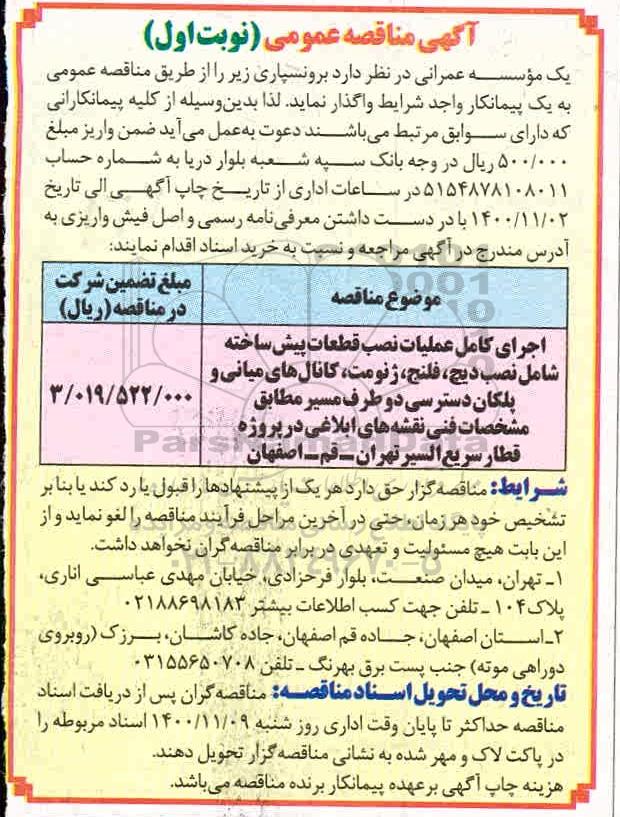 آگهی مناقصه عمومی (نوبت اول)
یک مؤسسه عمرانی در نظر دارد برونسپاری زیر را از طریق مناقصه عمومی
به یک پیمانکار واجد شرایط واگذار نماید. لذا بدین‌وسیله از کلیه پیمانکارانی
که دارای سوابق مرتبط می‌باشند دعوت به‌عمل می‌آید ضمن واریز مبلغ
۵۰۰/۰۰۰ ریال در وجه بانک سپه شعبه بلوار دریا به شماره حساب
۵۱۵۴۸۷۸۱۰۸۰۱۱ در ساعات اداری از تاریخ چاپ آگهی الی تاریخ
۱۴۰۰/۱۱/۰۲ با در دست داشتن معرفی‌نامه رسمی و اصل فیش واریزی به
آدرس مندرج در آگهی مراجعه و نسبت به خرید اسناد اقدام نمایند:
موضوع مناقصه
مبلغ تضمین شرکت
در مناقصه (ریال)
اجرای کامل عملیات نصب قطعات پیش ساخته
شامل نصب دیچ، فلنج، ژنومت، کانال‌های میانی و
پلکان دسترسی دو طرف مسیر مطابق
مشخصات فنی نقشه‌های ابلاغی در پروژه
قطار سریع السیر تهران ــ قم ــ اصفهان
۳/۰۱۹/۵۲۲/۰۰۰
شرایط: مناقصه‌گزار حق دارد هر یک از پیشنهادها را قبول یا رد کند یا بنا بر
تشخیص خود هر زمان، حتی در آخرین مراحل فرآیند مناقصه را لغو نماید و از
این بابت هیچ مسئولیت و تعهدی در برابر مناقصه‌گران نخواهد داشت.
۱ـ تهران، میدان صنعت، بلوار فرحزادی، خیابان مهدی عباسی اناری،
پلاک ۱۰۴ ـ تلفن جهت کسب اطلاعات بیشتر ۰۲۱۸۸۶۹۸۱۸۳
۲ـ استان اصفهان، جاده قم اصفهان، جاده کاشان، برزک (روبروی
دوراهی موته) جنب پست برق بهرنگ ـ تلفن ۰۳۱۵۵۶۵۰۷۰۸
تاریخ و محل تحویل اسناد مناقصه: مناقصه‌گران پس از دریافت اسناد
مناقصه حداکثر تا پایان وقت اداری روز شنبه ۱۴۰۰/۱۱/۰۹ اسناد مربوطه را
در پاکت لاک و مهر شده به نشانی مناقصه‌گزار تحویل دهند.
هزینه چاپ آگهی برعهده پیمانکار برنده مناقصه می‌باشد.
ParsNamadData
۰۲۱-۸۸۳۴۹۶۷۰-۵